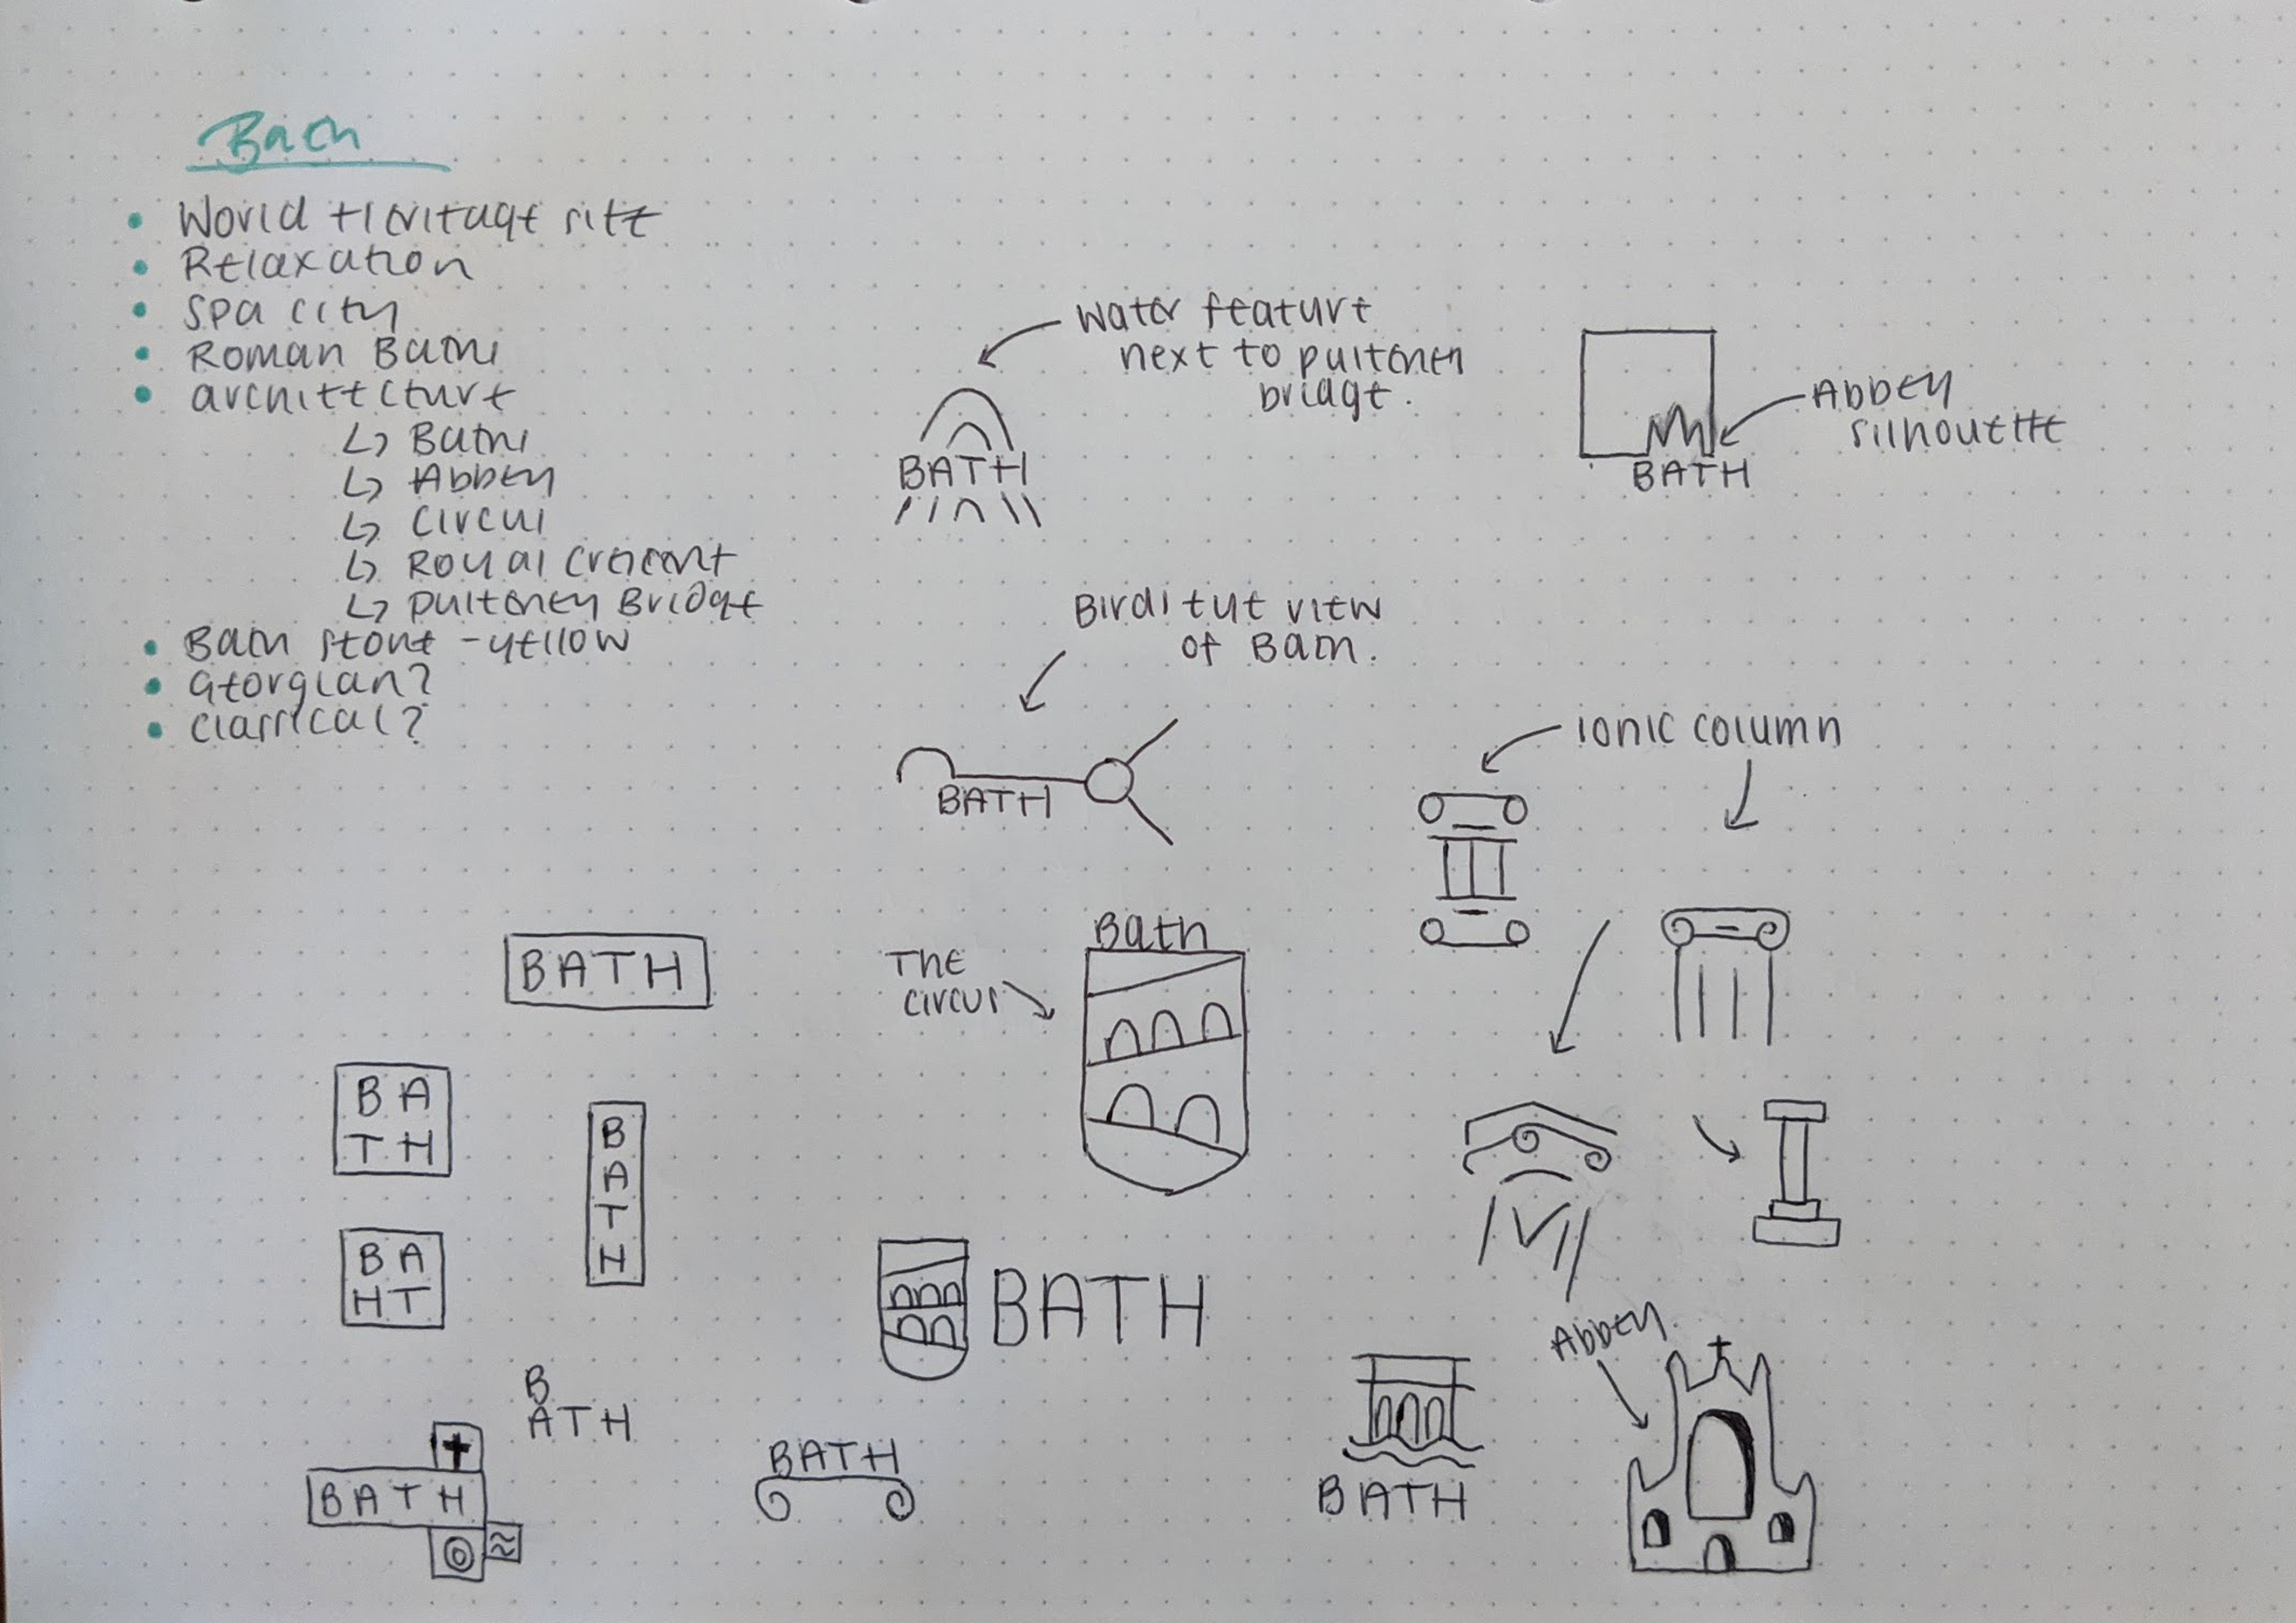 Bath
• World Heritage site
• Relaxation
• Spa city
• Roman Baths
• architecture
↳ Baths
↳ Abbey
↳ Circus
↳ Royal Crescent
↳ Pulteney Bridge
• Bath stone - yellow
• Georgian?
• Classical?
Water feature
next to pulteney
bridge.
BATH
Abbey
silhouette
BATH
Birds eye view
of Bath.
BATH
ionic column
BATH
The
circus
Bath
BA
TH
B
A
T
H
BA
HT
BATH
B
ATH
BATH
BATH
BATH
Abbey